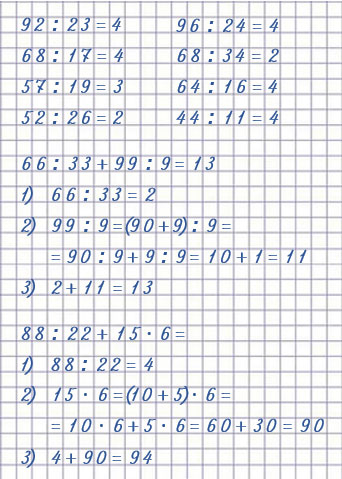 92 : 23 = 4
96 : 24 = 4
68 : 17 = 4
68 : 34 = 2
57 : 19 = 3
64 : 16 = 4
52 : 26 = 2
44 : 11 = 4
66 : 33 + 99 : 9 = 13
1) 66 : 33 = 2
2) 99 : 9 = (90 + 9) : 9 =
= 90 : 9 + 9 : 9 = 10 + 1 = 11
3) 2 + 11 = 13
88 : 22 + 15 · 6 =
1) 88 : 22 = 4
2) 15 · 6 = (10 + 5) · 6 =
= 10 · 6 + 5 · 6 = 60 + 30 = 90
3) 4 + 90 = 94